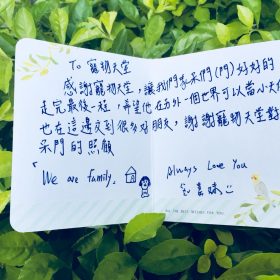 To 寵物天堂
感謝寵物天堂，讓我們家呆們(門)好好的
走完最後一程，希望他在另外一個世界可以當小天使
也在這邊交到很多好朋友，謝謝寵物天堂對
呆門的照顧
「We are family.
Always Love You